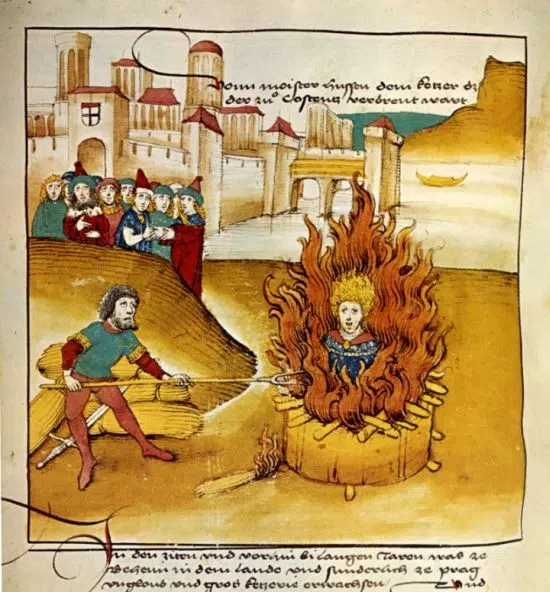 Vonn meister Hussen dem ketzer
der zuͦ Costentz verbrent wart
In den ziten vnd bi langen Jaren was ze
Behemi in dem lande vnd sunderlich ze prag
vngloub vnd gros ketzerie erwachsen Vnd